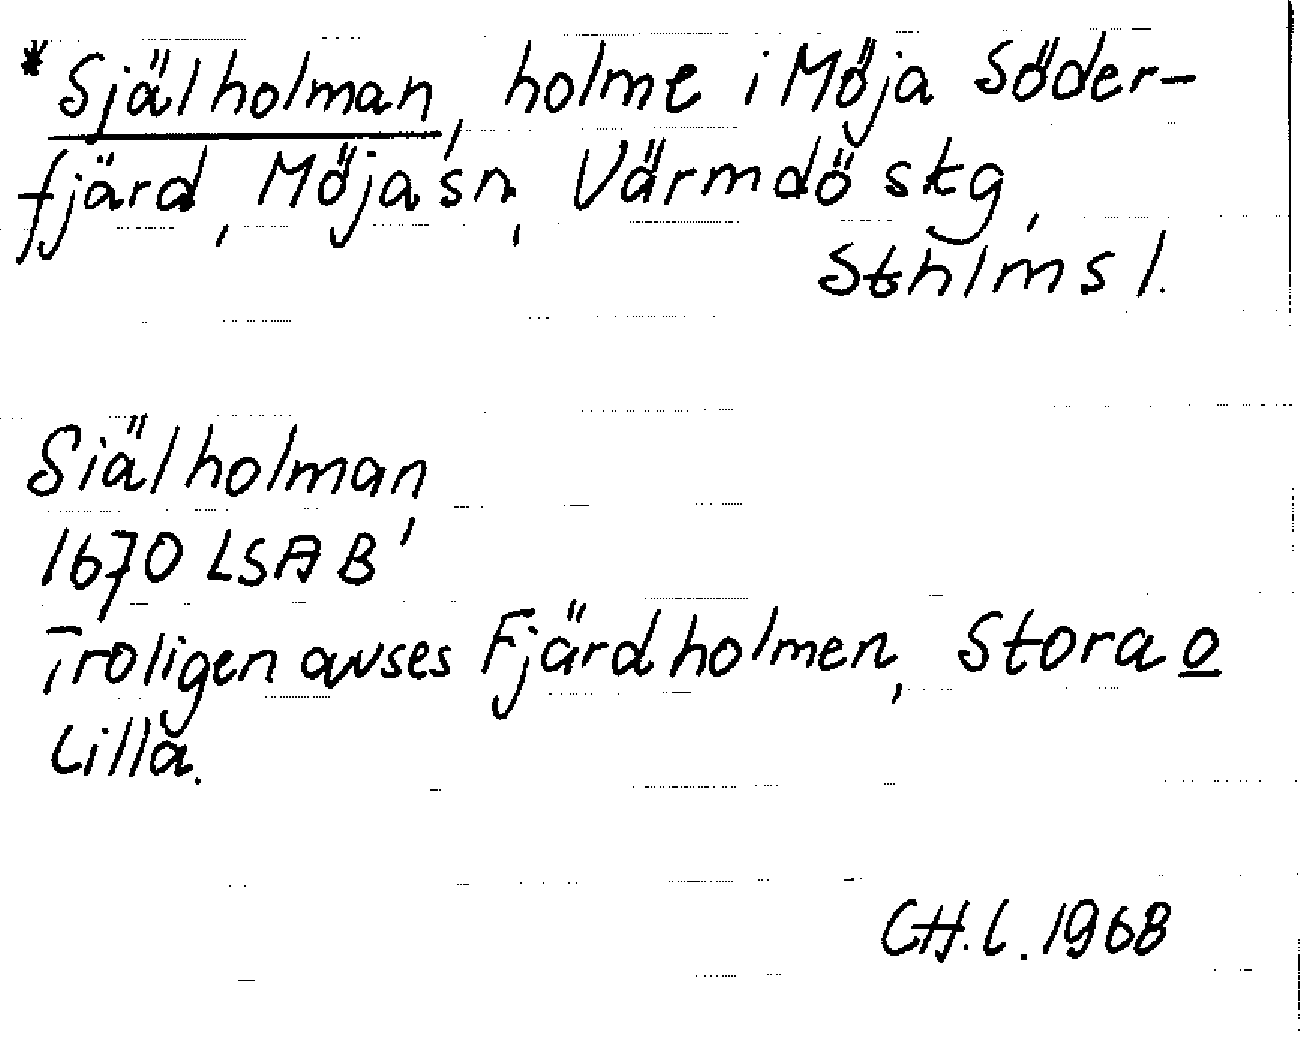 *Själholman, holme i Möja Söder-
fjärd, Möja sn, Värmdö skg,
Sthlms l.
Siälholman
1670 LSA B'
Troligen avses Fjärdholmen, Stora o
Lilla.
CH.L. 1968